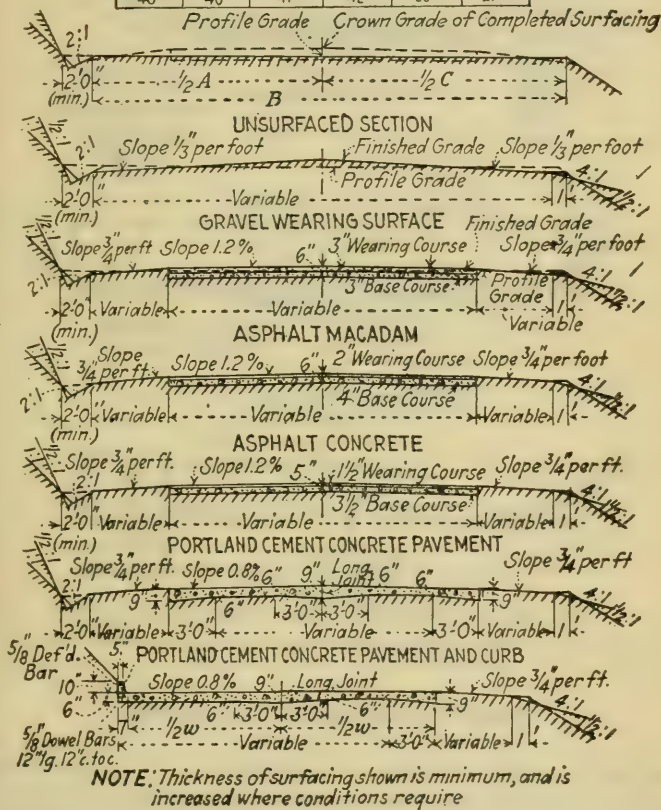 Profile Grade Crown Grade of Completed Surfacing
2:1
2'0" ½A ½C
(min.) B
UNSURFACED SECTION
1½:1 2:1 Slope ⅓" per foot Finished Grade Slope ⅓" per foot
Profile Grade 4:1
2'0" Variable 1' 1½:1
(min.)
GRAVEL WEARING SURFACE Finished Grade
Slope ¾" per ft Slope 1.2% 6" 3" Wearing Course Slope ¾" per foot
2:1 3" Base Course Profile 4:1
2'0" Variable Variable Grade 1' 1½:1
(min.) Variable
ASPHALT MACADAM
1½:1 Slope Slope 1.2% 6" 2" Wearing Course Slope ¾" per foot
¾" per ft.
2:1 4" Base Course 4:1
2'0" Variable Variable Variable 1' 1½:1
(min.)
ASPHALT CONCRETE
1½:1 Slope ¾" per ft. Slope 1.2% 5" 1½" Wearing Course Slope ¾" per ft.
2:1 3½" Base Course 4:1
2'0" Variable Variable Variable 1' 1½:1
(min.)
PORTLAND CEMENT CONCRETE PAVEMENT
1½:1 Slope ¾" per ft. Slope 0.8% 6" 9" Long 6" 6" Slope ¾" per ft.
Joint
2:1 9" 6" 3'0" 3'0" 9" 4:1
2'0" Variable 3'0" Variable 3'0" Variable 1' 1½:1
PORTLAND CEMENT CONCRETE PAVEMENT AND CURB
⅝" Def'd. 5"
Bar
10" Slope 0.8% 9" Long Joint Slope ¾" per ft.
6" 6" 3'0" 3'0" 6" 9" 4:1
1" ½w ½w 1½:1
⅝" Dowel Bars Variable 3'0" Variable 1'
12" lg. 12" c. to c.
NOTE: Thickness of surfacing shown is minimum, and is
increased where conditions require